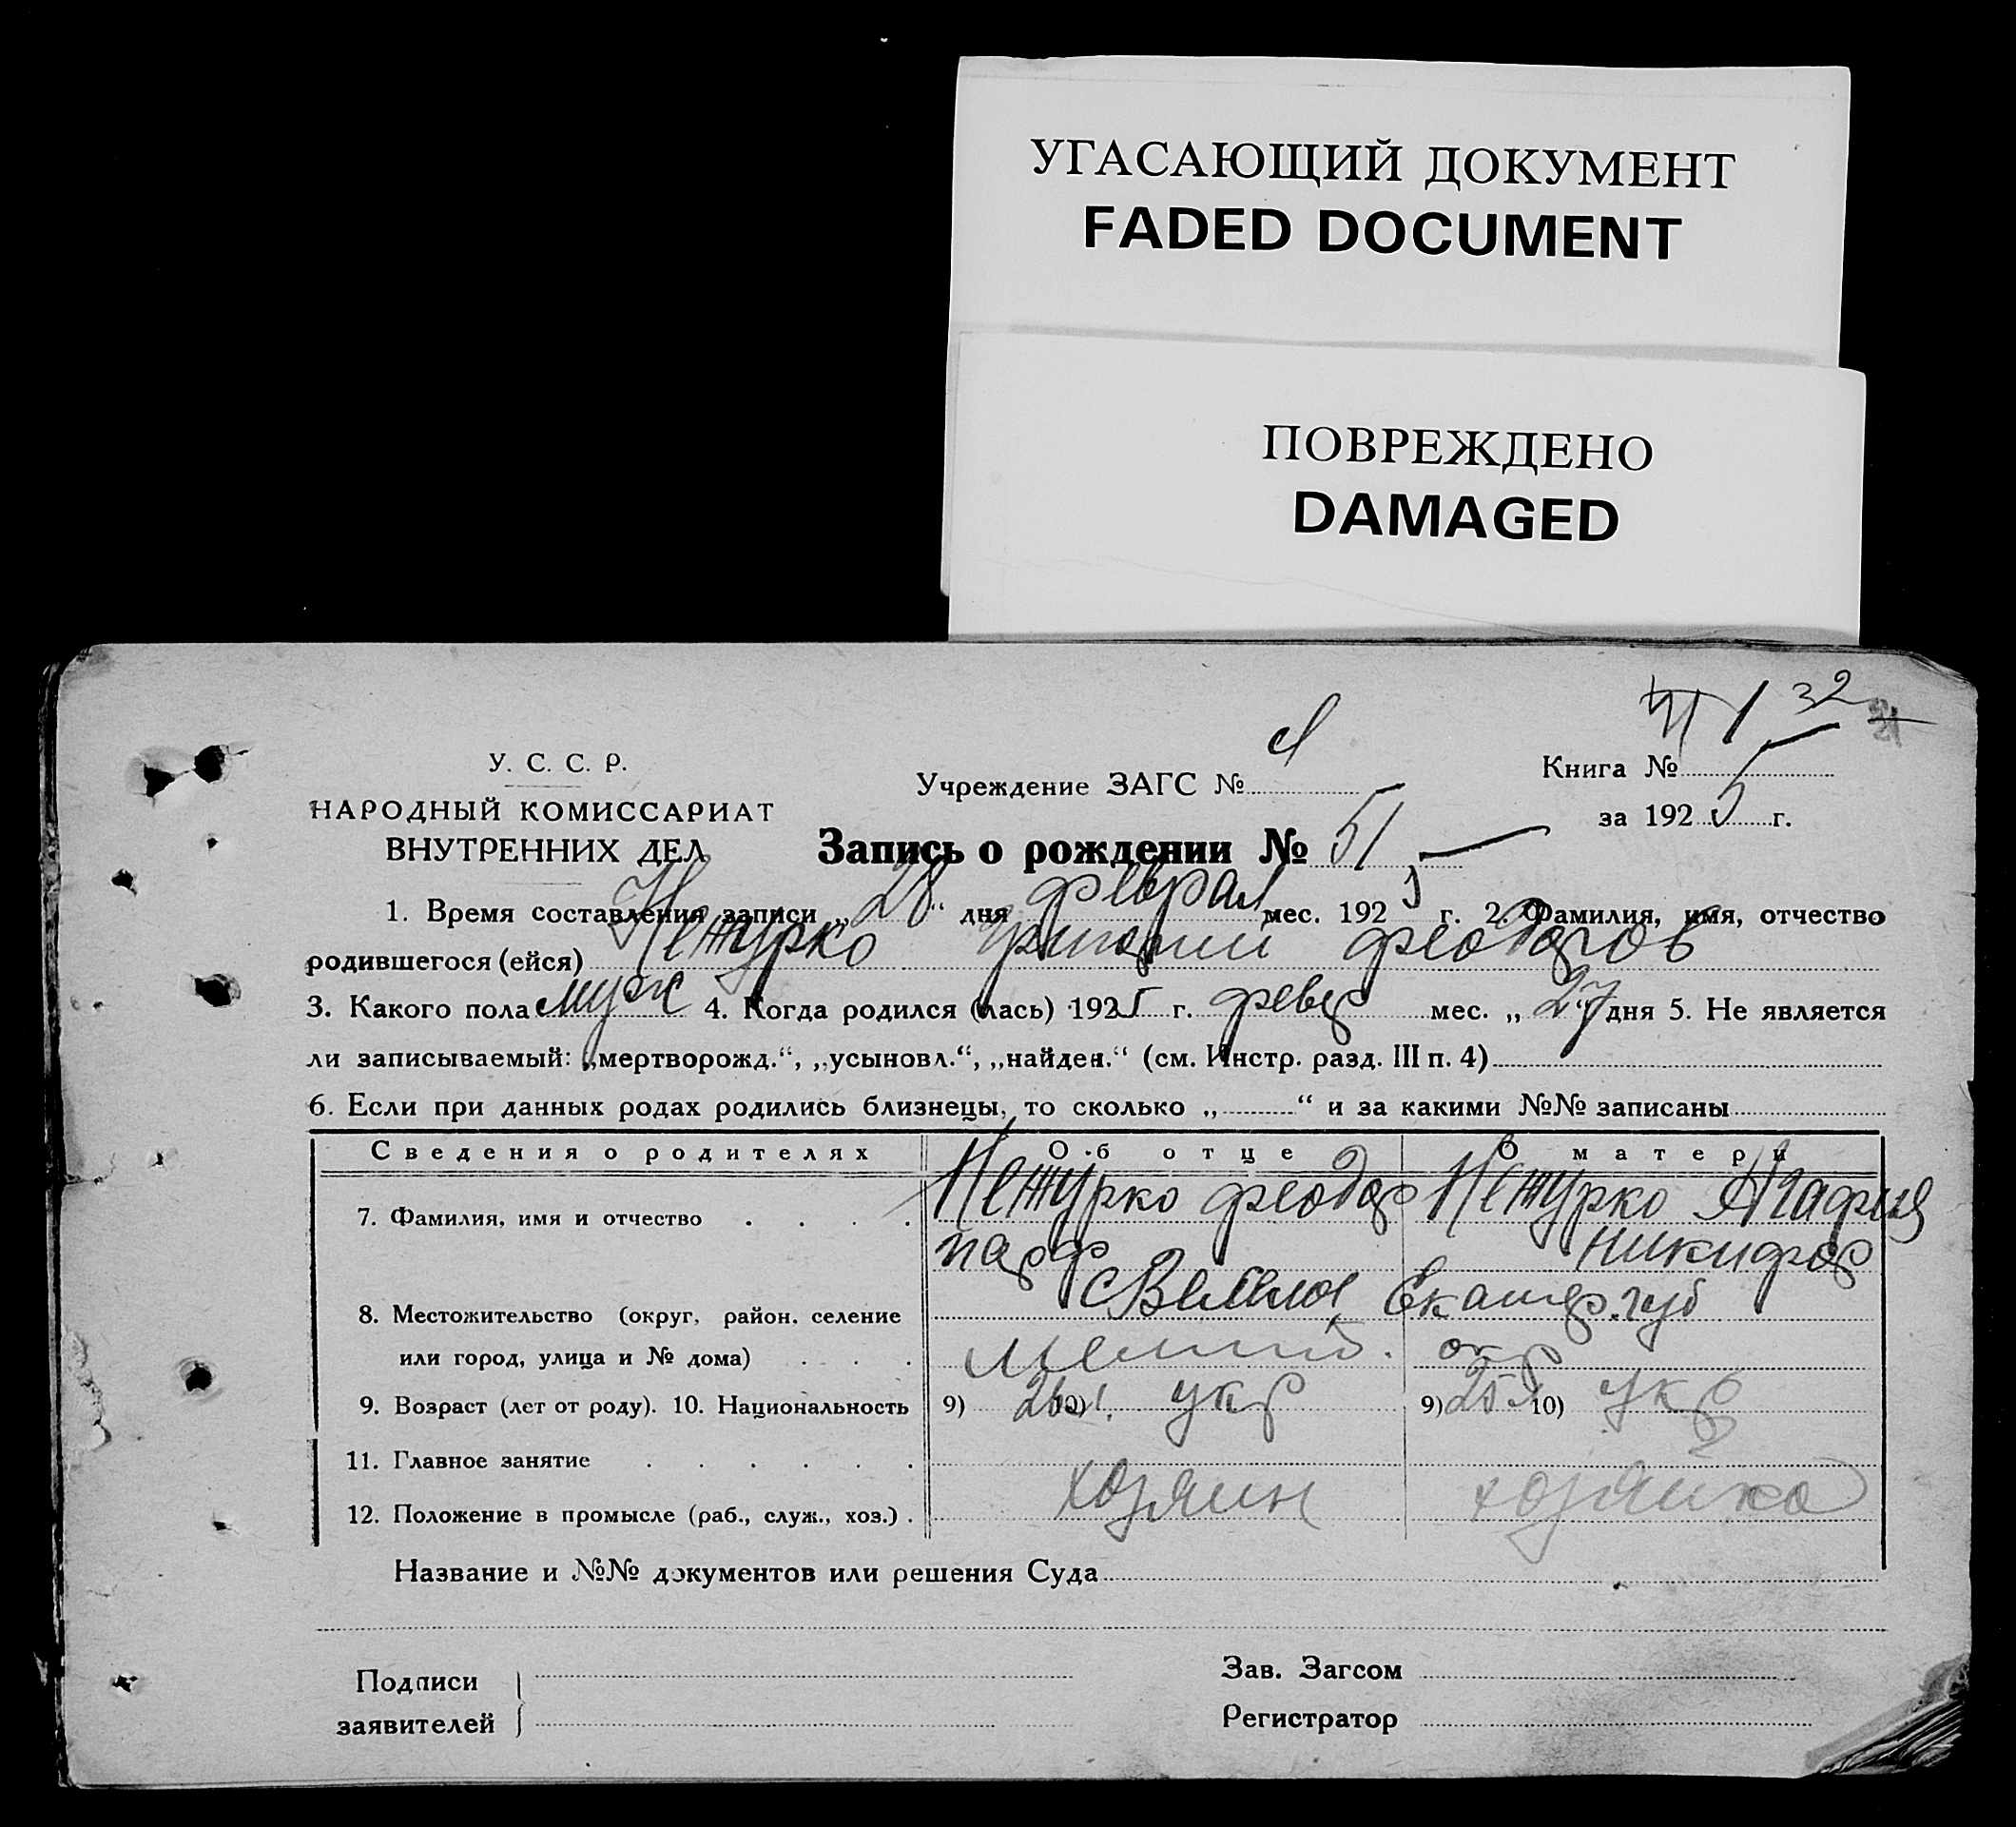 УГАСАЮЩИЙ ДОКУМЕНТ
FADED DOCUMENT
ПОВРЕЖДЕНО
DAMAGED
32
У. С. С. Р.
НАРОДНЫЙ КОМИССАРИАТ
ВНУТРЕННИХ ДЕЛ
Учреждение ЗАГС №
Книга №
за 1925 г.
Запись о рождении № 51
1. Время составления записи „28“ дня феврал мес. 1925 г. 2. Фамилия, имя, отчество
родившегося (ейся) Нетурко Григорий Феодоров
3. Какого пола муж 4. Когда родился (лась) 1925 г. февр мес. „27“ дня 5. Не является
ли записываемый: „мертворожд.“, „усыновл.“, „найден.“ (см. Инстр. разд. III п. 4)
6. Если при данных родах родились близнецы, то сколько „ “ и за какими №№ записаны
Сведения о родителях Об отце О матери
7. Фамилия, имя и отчество Нетурко Феодор Нетурко Агафия
парф никифор
8. Местожительство (округ, район, селение Екатер. губ
или город, улица и № дома) окр
9. Возраст (лет от роду). 10. Национальность 9) 26 10) укр 9) 25 10) укр
11. Главное занятие
12. Положение в промысле (раб., служ., хоз.) хозяин хозяйка
Название и №№ документов или решения Суда
Подписи
заявителей
Зав. Загсом
Регистратор